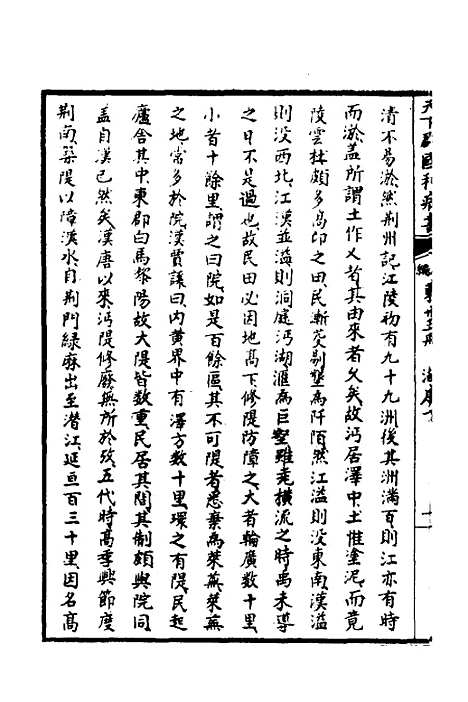 清不易淤然荆州記江陵初有九十九洲後其洲滿百則江亦有時
而淤盖所謂土作乂者其由來者乆矣故沔居澤中土惟塗泥而竟
陵雲林頗多高卬之田民漸芟剔墾為阡陌然江溢則没東南漢溢
則没西北江漢並溢則洞庭沔湖滙為巨壑雖走橫流之時禹未導
之日不是過也故民田必因地髙下修隄防障之大者輪廣數十里
小者十餘里謂之曰院如是百餘區其不可隄者悉棄為萊蕪萊蕪
之地常多於院漢賈讓曰内黄界中有澤方數十里環之有隄民起
廬舍其中東郡白馬黎陽故大隄皆數重民居其間其制頗與院同
盖自漢已然矣漢唐以來沔隄修廢無所於攷五代時髙季興節度
荆南築隄以障漢水自荆門緑麻出至潜江延亘百三十里因名髙
天下郡國利病書 編 湖廣下